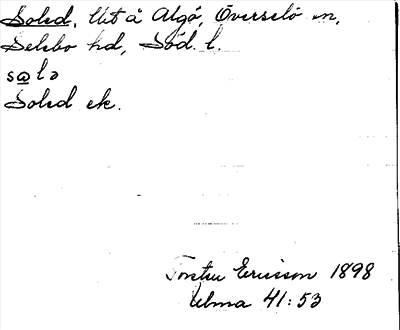 Soled, Ut å Algö, Överselö sn,
Selebo hd, Söd. l.
sɷlə
Soled ek.
Torsten Ericsson 1898
Ulma 41:53